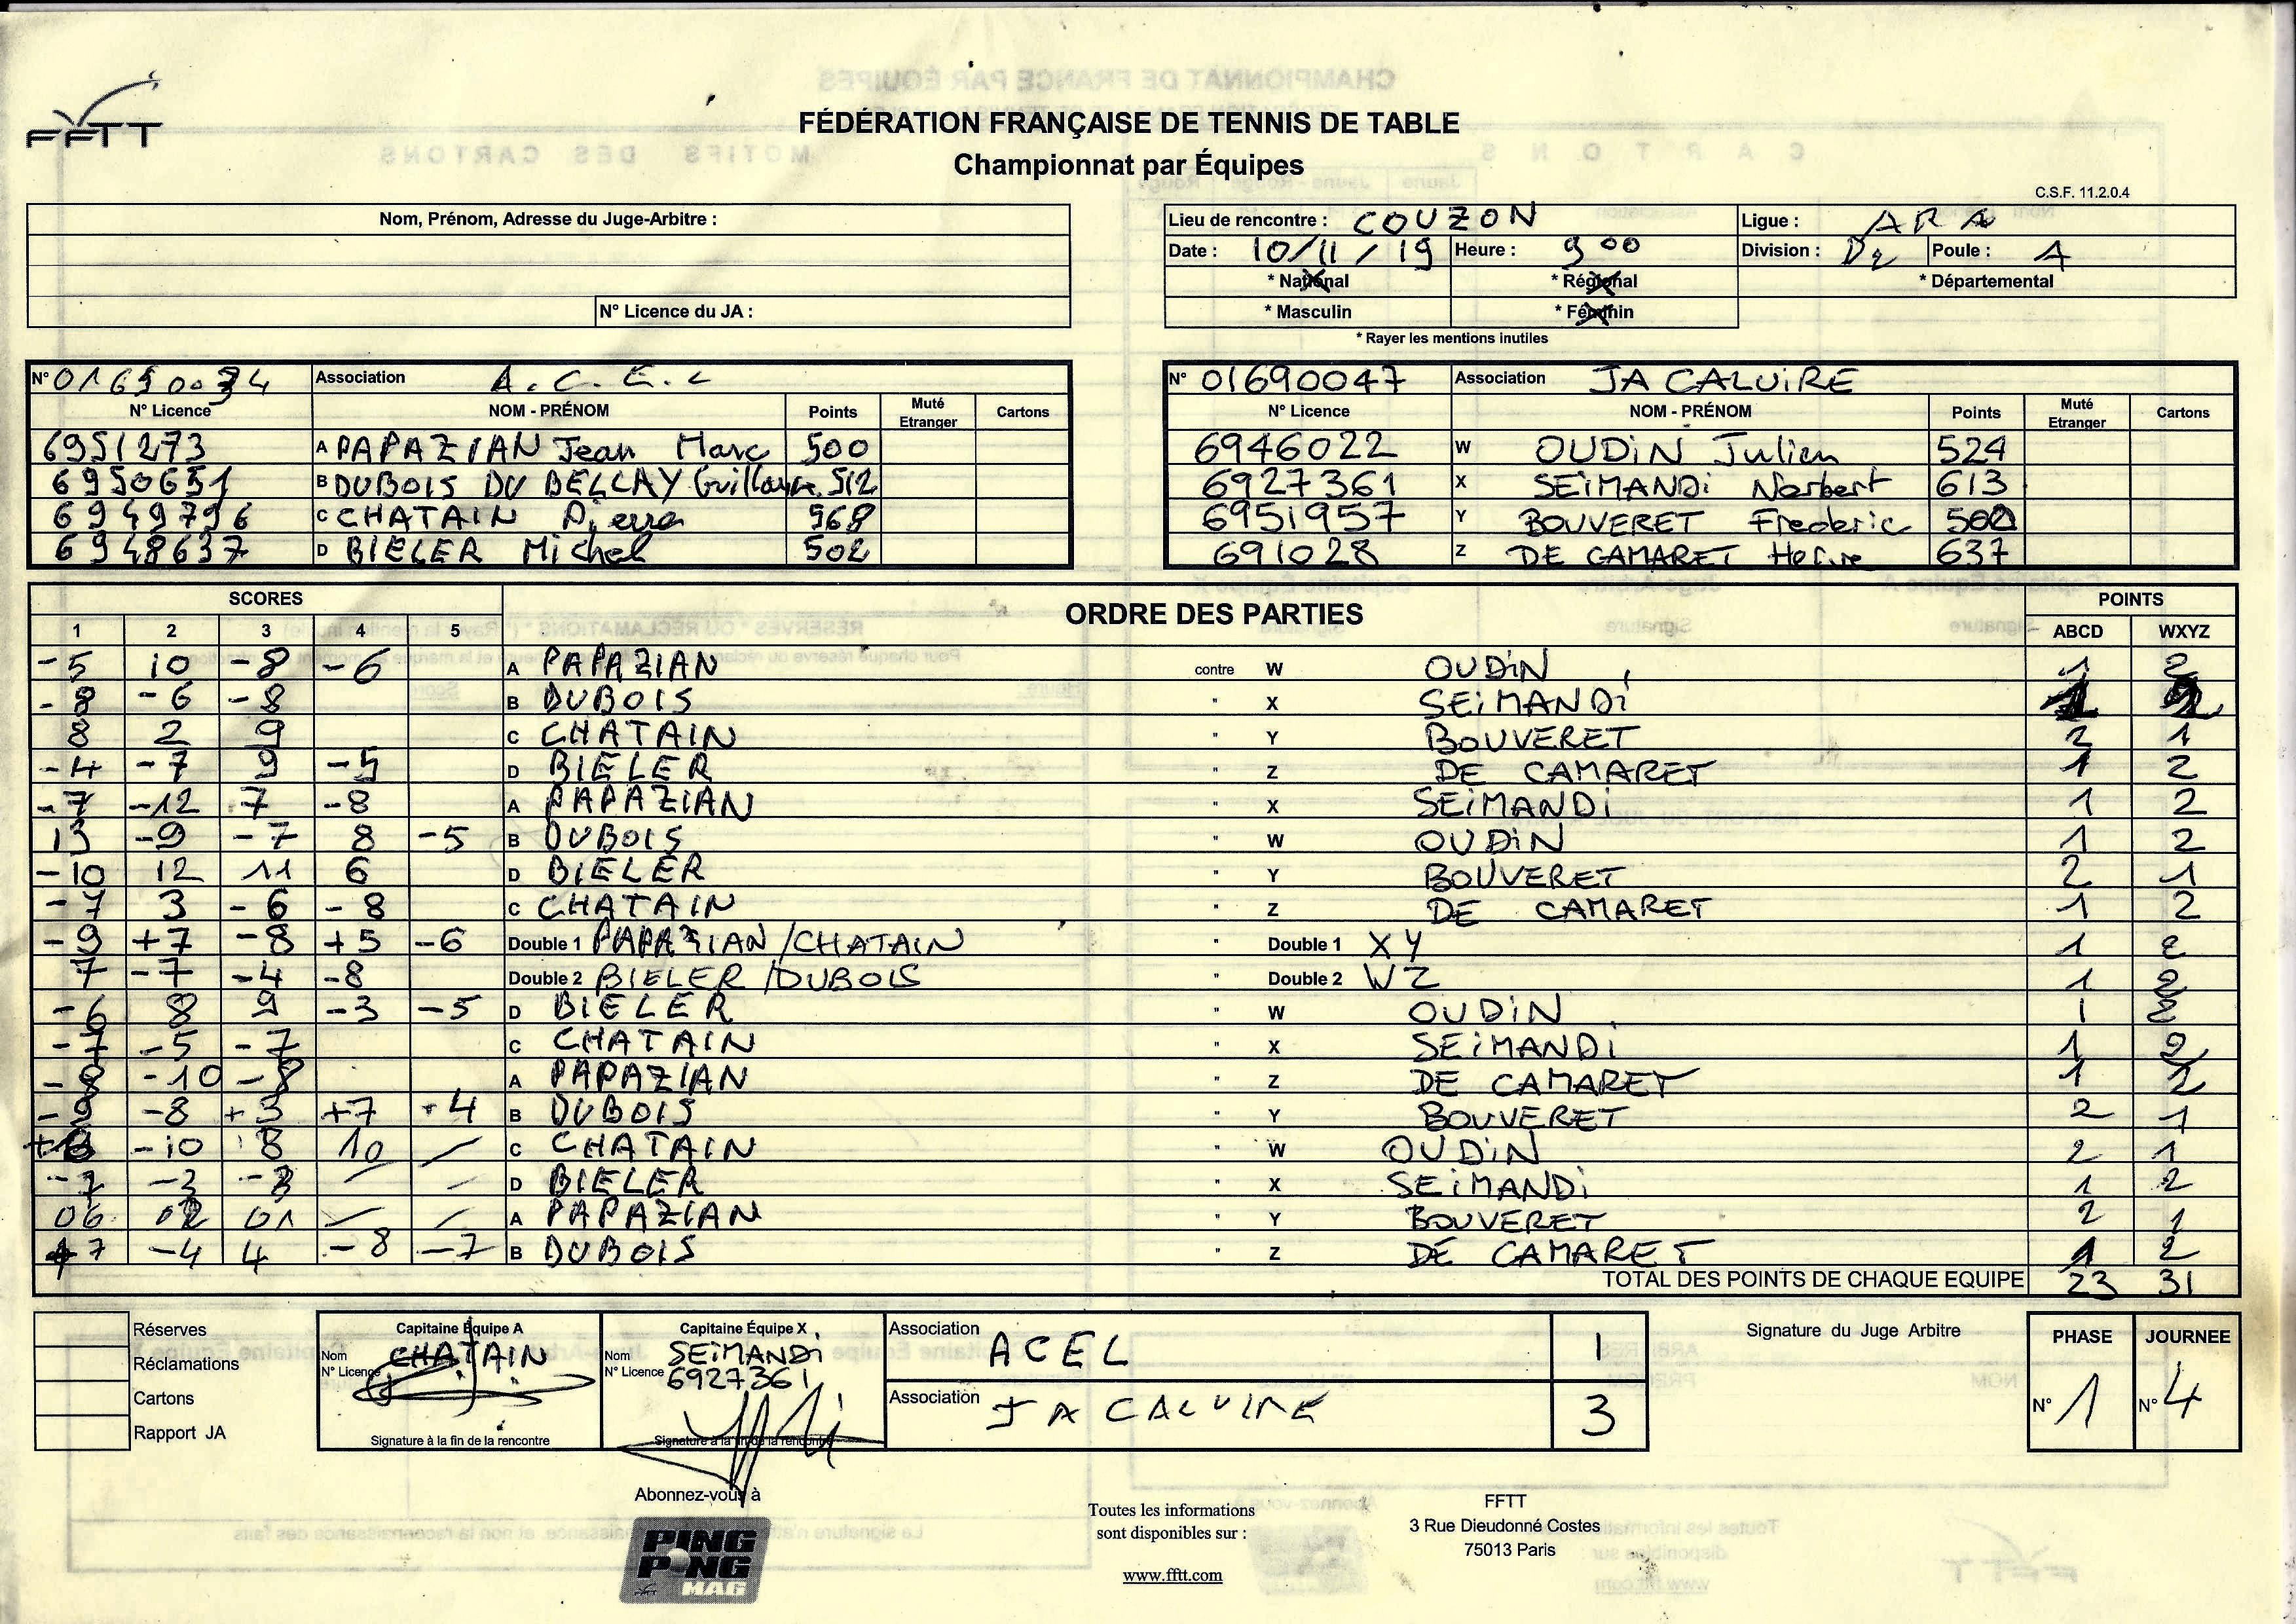 FFTT
FÉDÉRATION FRANÇAISE DE TENNIS DE TABLE
Championnat par Équipes
C.S.F. 11.2.0.4
Nom, Prénom, Adresse du Juge-Arbitre :
N° Licence du JA :
Lieu de rencontre : COUZON Ligue : ARA
Date : 10/11/19 Heure : 9 00 Division : D2 Poule : A
* National * Régional * Départemental
* Masculin * Féminin
* Rayer les mentions inutiles
N° 01690034 Association A.C.E.L
N° Licence NOM - PRÉNOM Points Muté Etranger Cartons
6951273 A PAPAZIAN Jean Marc 500
6950651 B DUBOIS DU BELLAY Guillaume 512
6949796 C CHATAIN Pierre 568
6948637 D BIELER Michel 502
N° 01690047 Association JA CALUIRE
N° Licence NOM - PRÉNOM Points Muté Etranger Cartons
6946022 W OUDIN Julien 524
6927361 X SEIMANDI Norbert 613
6951957 Y BOUVERET Frederic 500
691028 Z DE CAMARET 637
SCORES ORDRE DES PARTIES POINTS
1 2 3 4 5 ABCD WXYZ
-5 10 -8 -6 A PAPAZIAN contre W OUDIN 1 2
-8 -6 -8 B DUBOIS " X SEIMANDI 1 2
8 2 9 C CHATAIN " Y BOUVERET 2 1
-4 -7 9 -5 D BIELER " Z DE CAMARET 1 2
-7 -12 7 -8 A PAPAZIAN " X SEIMANDI 1 2
13 -9 -7 8 -5 B DUBOIS " W OUDIN 1 2
-10 12 11 6 D BIELER " Y BOUVERET 2 1
-7 3 -6 -8 C CHATAIN " Z DE CAMARET 1 2
-9 +7 -8 +5 -6 Double 1 PAPAZIAN/CHATAIN " Double 1 XY 1 2
7 -7 -4 -8 Double 2 BIELER/DUBOIS " Double 2 WZ 1 2
-6 8 9 -3 -5 D BIELER " W OUDIN 1 2
-7 -5 -7 C CHATAIN " X SEIMANDI 1 2
-8 -10 -8 A PAPAZIAN " Z DE CAMARET 1 2
-9 -8 +3 +7 +4 B DUBOIS " Y BOUVERET 2 1
-10 8 10 / C CHATAIN " W OUDIN 2 1
-7 -3 / / D BIELER " X SEIMANDI 1 2
06 02 01 / / A PAPAZIAN " Y BOUVERET 2 1
7 -4 4 -8 -7 B DUBOIS " Z DE CAMARET 1 2
TOTAL DES POINTS DE CHAQUE EQUIPE 23 31
Réserves
Réclamations
Cartons
Rapport JA
Capitaine Équipe A
Nom CHATAIN
N° Licence
Signature à la fin de la rencontre
Capitaine Équipe X
Nom SEIMANDI
N° Licence 6927361
Signature à la fin de la rencontre
Association ACEL 1
Association JA CALUIRE 3
Signature du Juge Arbitre
PHASE JOURNEE
N° 1 N° 4
Abonnez-vous à
PING PONG MAG
Toutes les informations
sont disponibles sur :
www.fftt.com
FFTT
3 Rue Dieudonné Costes
75013 Paris